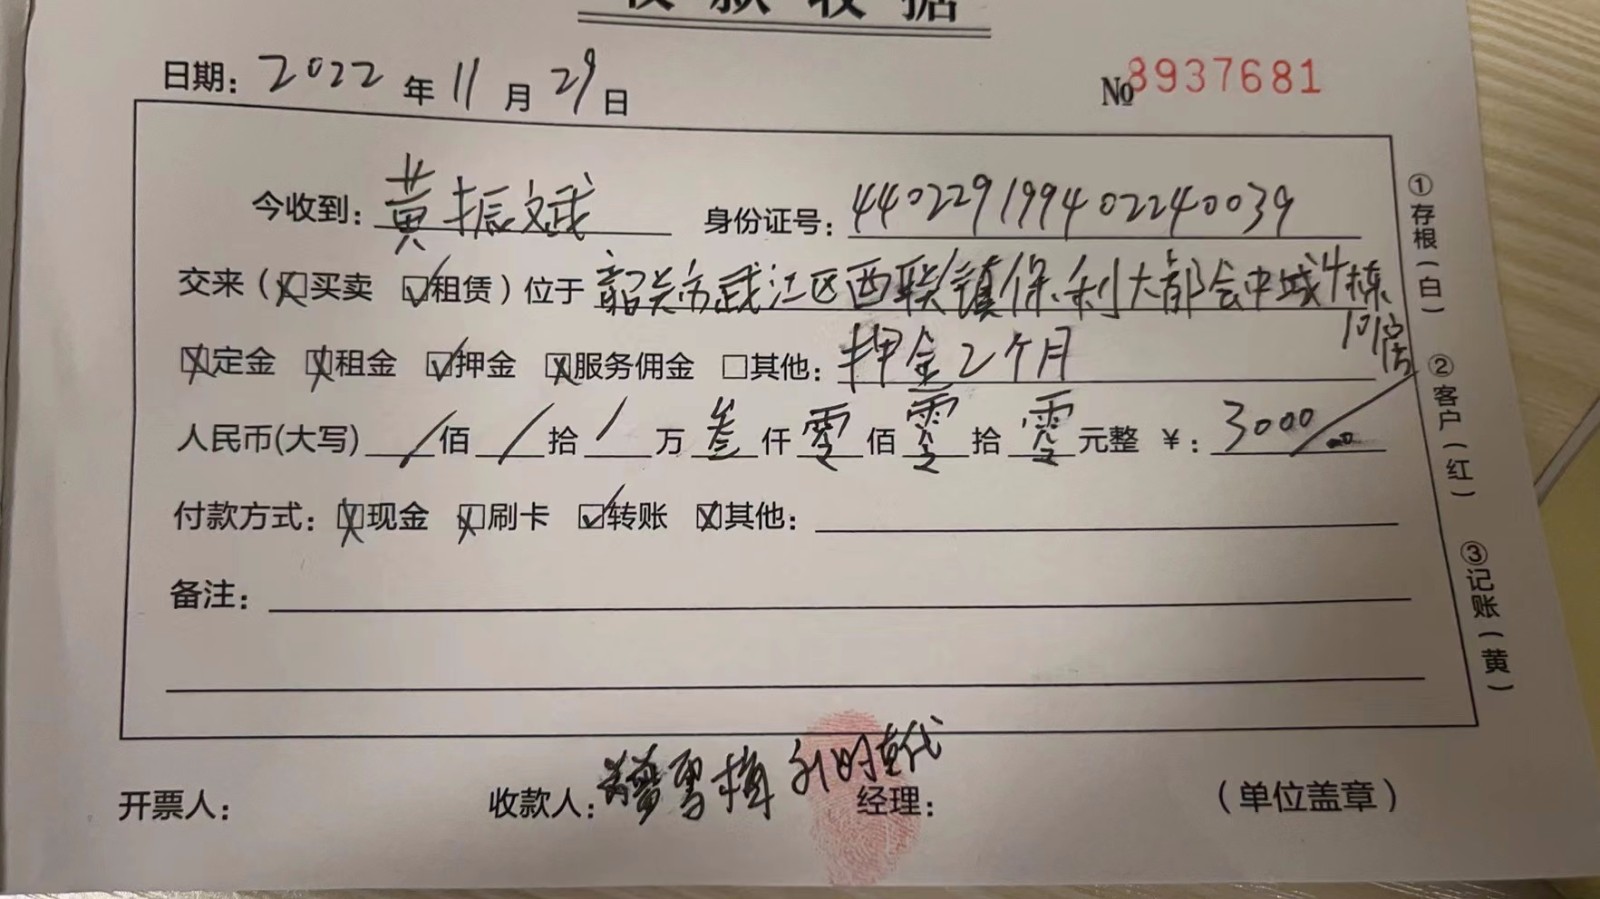 收款收据
日期：2022年11月29日
№8937681
今收到：黄振斌 身份证号：440229199402240039
交来（☒买卖 ☑租赁）位于 韶关市武江区西联镇保利大都会中城4栋
101房
☒定金 ☒租金 ☑押金 ☒服务佣金 □其他：押金2个月
人民币(大写) / 佰 / 拾 / 万 叁 仟 零 佰 零 拾 零 元整 ¥：3000/00
付款方式：☒现金 ☒刷卡 ☑转账 ☒其他：
备注：
开票人： 收款人： 雪梅 经理： （单位盖章）
①存根（白）
②客户（红）
③记账（黄）